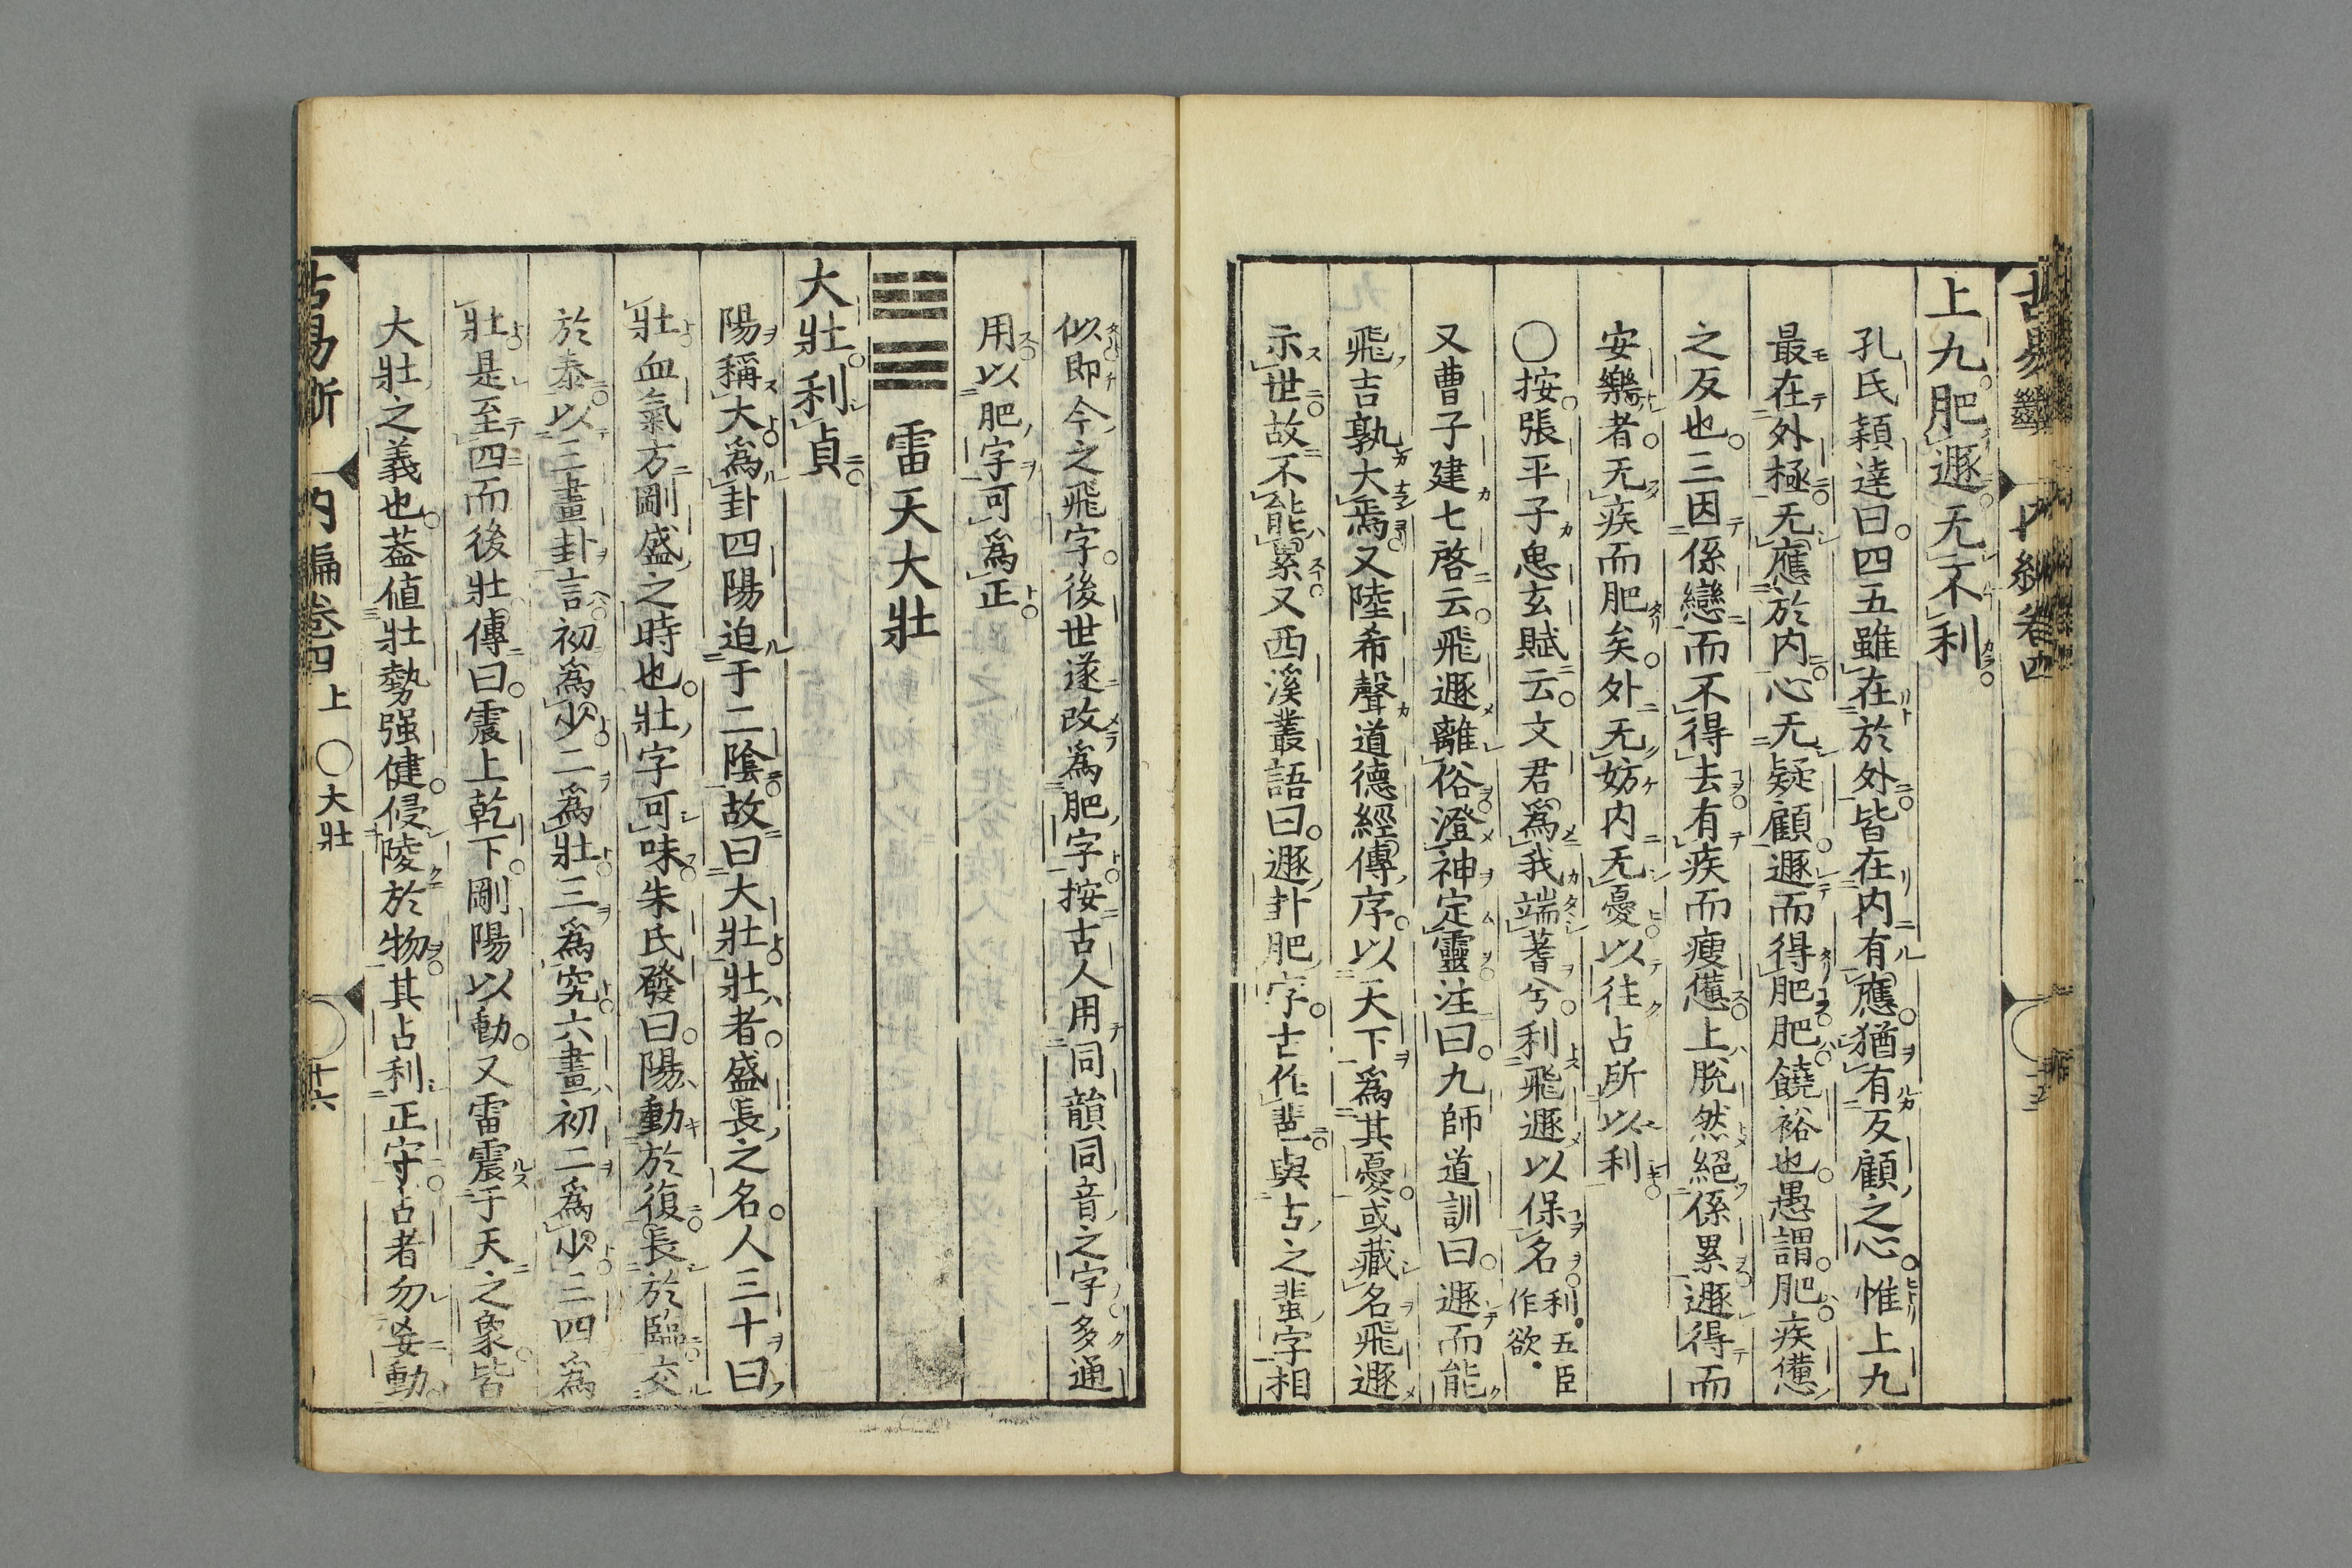 上九肥遯无不利
孔氏穎達曰四五雖在於外皆在内有應猶有反顧之心惟上九
最在外極无應於内心无疑顧遯而得肥肥饒裕也愚謂肥疾憊
之反也三因係戀而不得去有疾而瘦憊上脫然絕係累遯得而
安樂者无疾而肥矣外无妨内无憂以往占所以利
○按張平子思玄賦云文君為我端蓍兮利飛遯以保名利五臣作欲
又曹子建七啓云飛遯離俗澄神定靈注曰九師道訓曰遯而能
飛吉孰大焉又陸希聲道德經傳序以天下為其憂或藏名飛遯
示世故不能累又西溪叢語曰遯卦肥字古作𩇯與古之蜚字相
似即今之飛字後世遂改為肥字按古人用同韻同音之字多通
用以肥字可為正
䷡ 雷天大壯
大壯利貞
陽稱大為卦四陽迫于二陰故曰大壯壯者盛長之名人三十曰
壯血氣方剛盛之時也壯字可味朱氏發曰陽動於復長於臨交
於泰以三畫卦言初為少二為壯三為究六畫初二為少三四為
壯是至四而後壯傳曰震上乾下剛陽以動又雷震于天之象皆
大壯之義也蓋值壯勢强健侵陵於物其占利正守占者勿妄動
古易斷 内編卷四上 ○大壯 十六